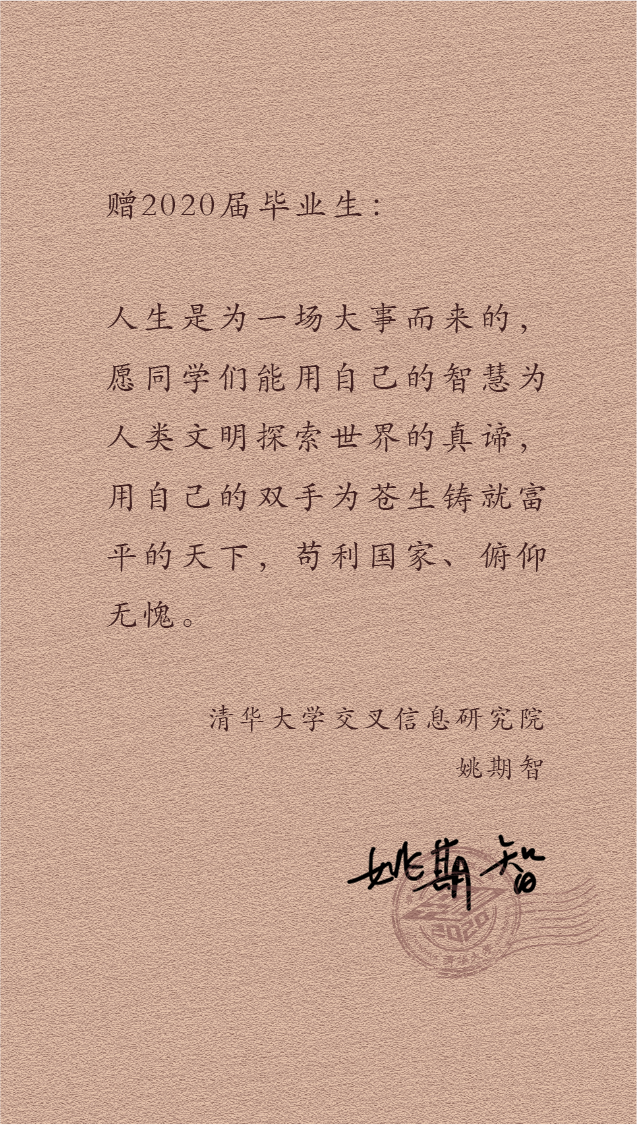 赠2020届毕业生：
人生是为一场大事而来的，
愿同学们能用自己的智慧为
人类文明探索世界的真谛，
用自己的双手为苍生铸就富
平的天下，苟利国家、俯仰
无愧。
清华大学交叉信息研究院
姚期智
姚期智
2020
清华大学